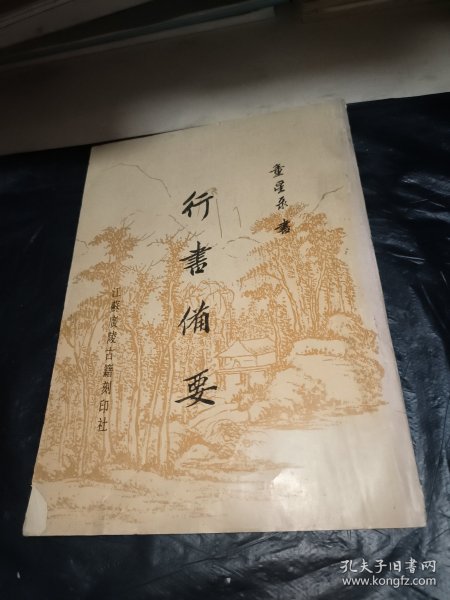 童星录 書
行書備要
江蘇廣陵古籍刻印社
孔夫子旧书网
www.kongfz.com